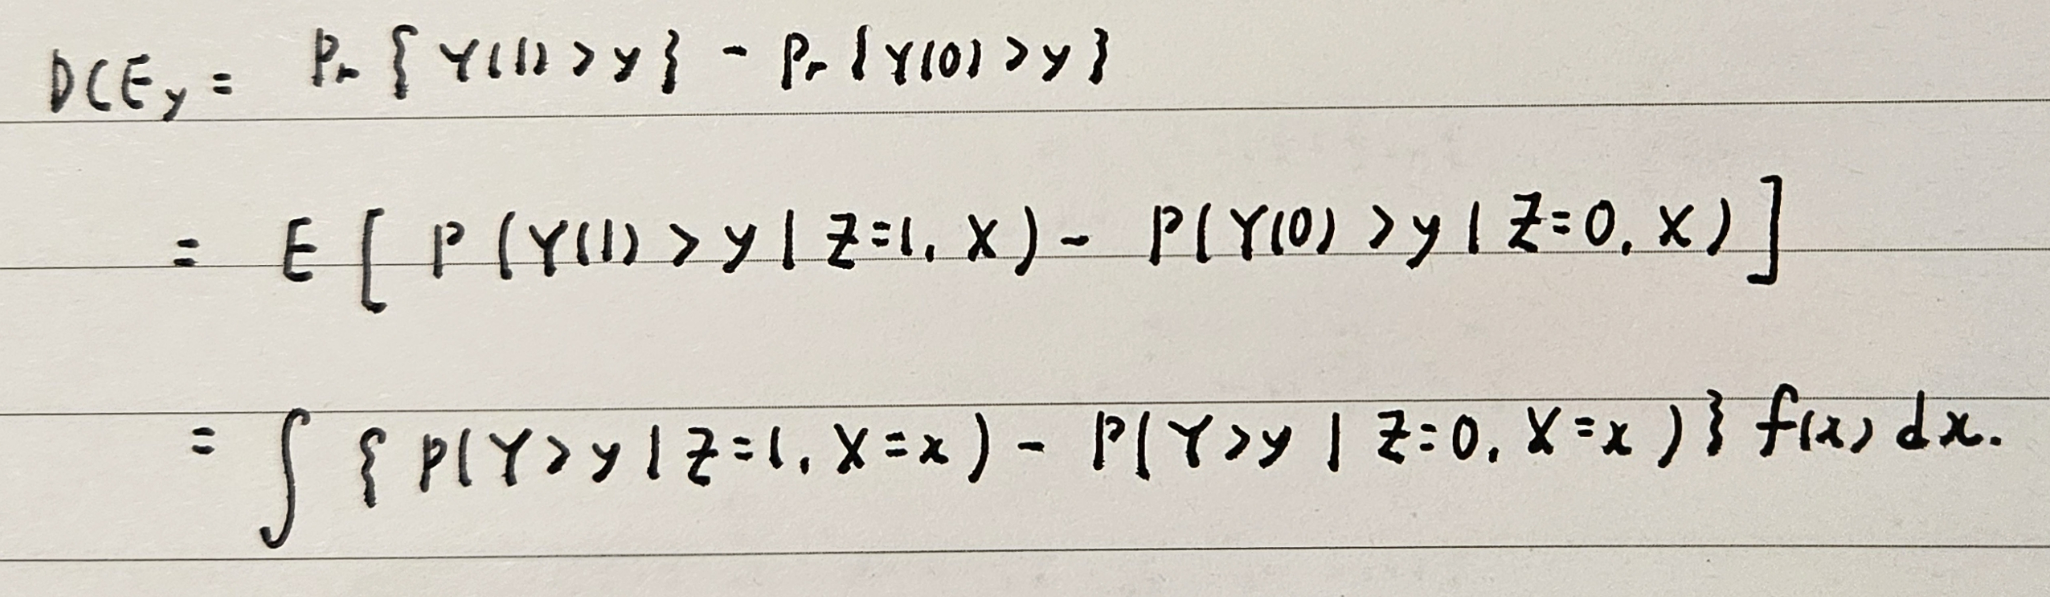 DCE_y = Pr{Y(1)>y} - Pr{Y(0)>y}
= E[P(Y(1)>y|Z=1, X) - P(Y(0)>y|Z=0, X)]
= ∫{P(Y>y|Z=1, X=x) - P(Y>y|Z=0, X=x)}f(x)dx.